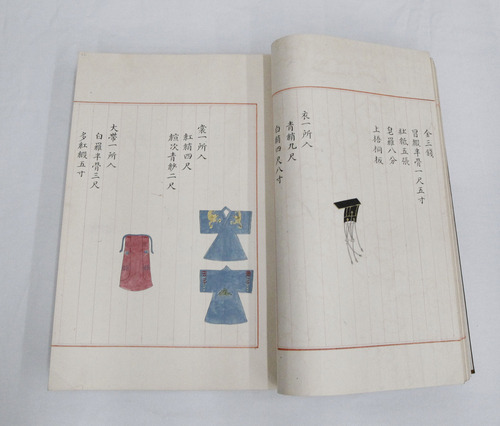 金三錢
冒緞半骨一尺五寸
紅紙五張
皂羅八分
上梧桐板
衣一所入
青綃九尺
白綃四尺八寸
裳一所入
紅綃四尺
縇次青紗二尺
大帶一所入
白羅半骨三尺
多紅緞五寸